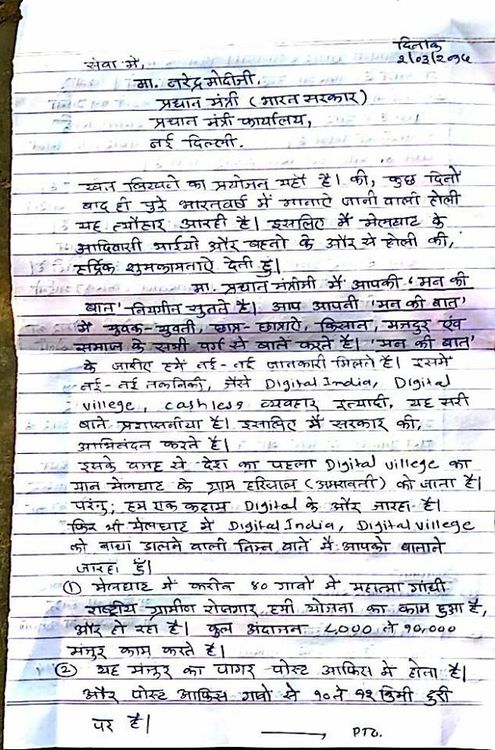 दिनांक
२/०३/२०१८
सेवा में,
मा. नरेंद्र मोदीजी.
प्रधान मंत्री (भारत सरकार)
प्रधान मंत्री कार्यालय,
नई दिल्ली.
खत लिखने का प्रयोजन यहाँ है। की, कुछ दिनो
बाद ही पुरे भारतवर्ष में मानाऐ जानी वाली होली
यह त्यौहार आरही है। इसलिए मैं मेलघाट के
आदिवासी भाईयो और बहनो के और से होली की,
हार्दिक शुभकामनाऐ देती हुं।
मा. प्रधान मंत्रीमी मैं आपकी 'मन की
बात'-नियमीन सुनते है। आप आपनी 'मन की बात'
में युवक-युवती, छात्र-छात्राऐ, किसान, मजदुर एंव
समाज के सभी वर्ग से बाते करते है। 'मन की बात'
के जारीए हमें नई-नई जानकारी मिलते है। इसमे
नई-नई तकनिकी, जैसे Digital India, Digital
villege, cashless व्यवहार इत्यादी, यह सरी
बाते प्रशंसनीया है। इसलिए मैं सरकार की,
अभिनंदन करते है।
इसके वजह से देश का पहला Digital villege का
मान मेलघाट के ग्राम हरिसाल (अमरावती) को जाता है।
परंतु, हम एक कदाम Digital के और जारहा है।
फिर भी मेलघाट में Digital India, Digital villege
को बाधा डालने वाली निम्न बाते मैं आपको बाताने
जारहा हुँ।
① मेलघाट में करीब ४० गावो में महात्मा गांधी
राष्ट्रीय ग्रामीण रोजगार हमी योजना का काम हुआ है,
और हो रहा है। कुल अंदाजन ८,००० ते १०,०००
मंजुर काम करते है।
② यह मंजुर का पागर पोस्ट आफिस में होता है।
और पोस्ट आफिस गावो से १० ते १२ किमी दुरी
पर है।
PTO.